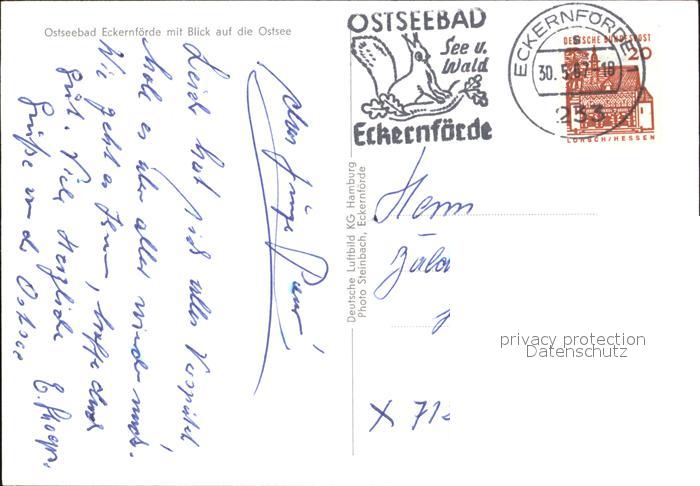 Ostseebad Eckernförde mit Blick auf die Ostsee
OSTSEEBAD
See u.
Wald
Eckernförde
ECKERNFÖRDE
s
30.5.67-18
233
DEUTSCHE BUNDESPOST
20
LORSCH/HESSEN
Leider hat sich alles verspätet
hole es aber alles wieder nach.
Wie geht es Ihnen, hoffe doch
gut. Viele herzliche
Grüße von der Ostsee
Deutsche Luftbild KG Hamburg
Photo Steinbach, Eckernförde
Herrn
X 71
privacy protection
Datenschutz